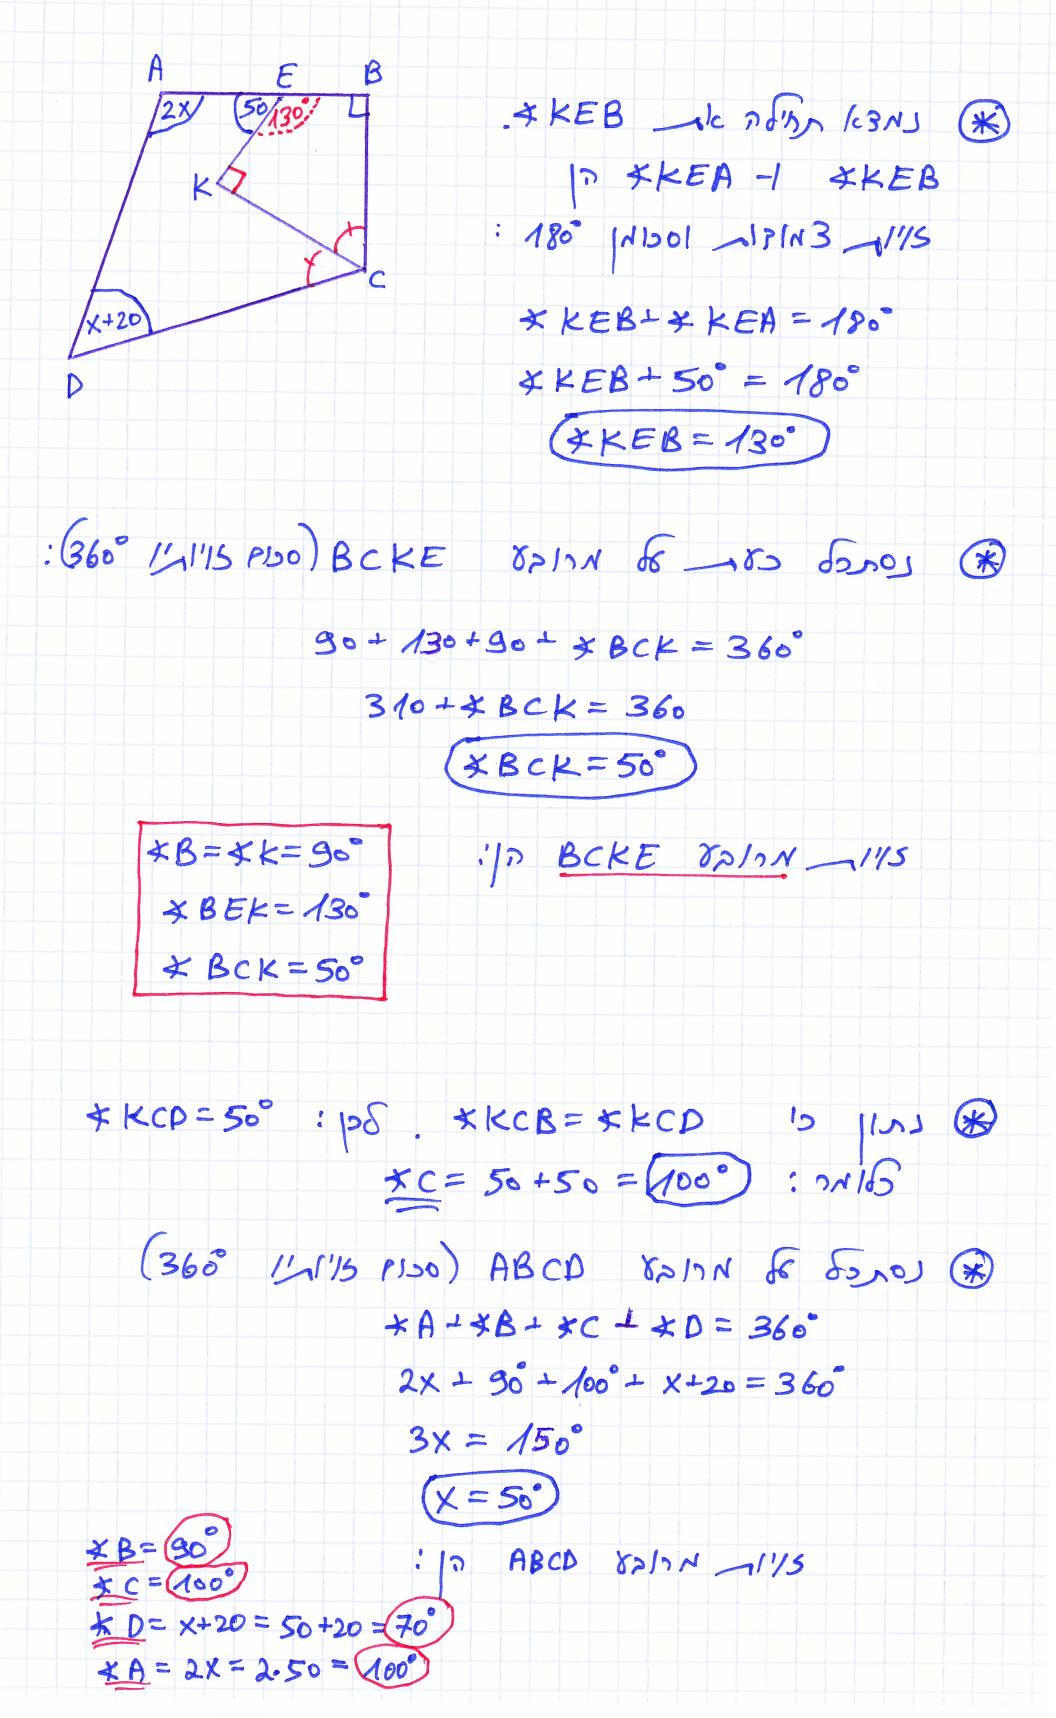 A E B
2x 50 130°
K
C
x+20
D
⊛ נמצא תחילה את ∢KEB.
∢KEB ו- ∢KEA הן
זוית צמודות וסכומן 180°:
∢KEB + ∢KEA = 180°
∢KEB + 50° = 180°
∢KEB = 130°
⊛ נסתכל כעת על מרובע BCKE (סכום זויותיו 360°):
90 + 130 + 90 + ∢BCK = 360°
310 + ∢BCK = 360
∢BCK = 50°
זוית מרובע BCKE הן:
∢B = ∢K = 90°
∢BEK = 130°
∢BCK = 50°
⊛ נתון כי ∢KCB = ∢KCD. לכן: ∢KCD = 50°
כלומר: ∢C = 50 + 50 = 100°
⊛ נסתכל על מרובע ABCD (סכום זויותיו 360°)
∢A + ∢B + ∢C + ∢D = 360°
2x + 90° + 100° + x+20 = 360°
3x = 150°
x = 50°
זוית מרובע ABCD הן:
∢B = 90°
∢C = 100°
∢D = x+20 = 50+20 = 70°
∢A = 2x = 2·50 = 100°